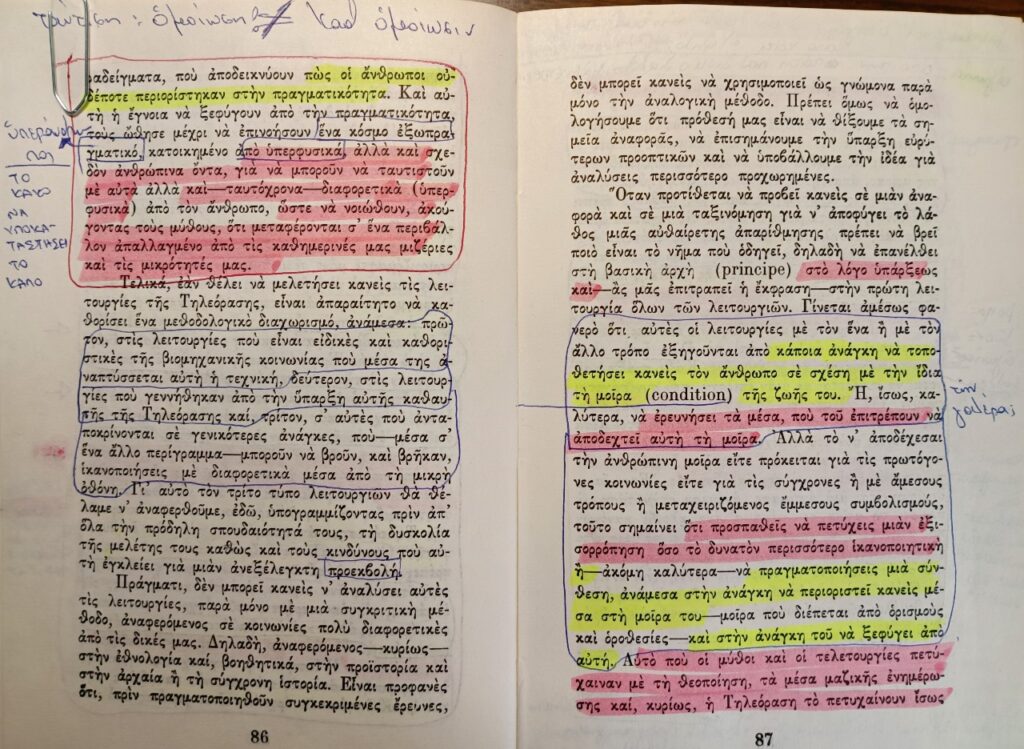 ταύτιση : ὁμοίωση καθ ὁμοίωσιν
ραδείγματα, ποὺ ἀποδεικνύουν πὼς οἱ ἄνθρωποι οὐ-
δέποτε περιορίστηκαν στὴν πραγματικότητα. Καὶ αὐ-
τὴ ἡ ἔγνοια νὰ ξεφύγουν ἀπὸ τὴν πραγματικότητα,
τοὺς ὤθησε μέχρι νὰ ἐπινοήσουν ἕνα κόσμο ἐξωπρα-
γματικό, κατοικημένο ἀπὸ ὑπερφυσικά, ἀλλὰ καὶ σχε-
δὸν ἀνθρώπινα ὄντα, γιὰ νὰ μποροῦν νὰ ταυτιστοῦν
μὲ αὐτὰ ἀλλὰ καὶ—ταυτόχρονα—διαφορετικὰ (ὑπερ-
φυσικὰ) ἀπὸ τὸν ἄνθρωπο, ὥστε νὰ νοιώθουν, ἀκού-
γοντας τοὺς μύθους, ὅτι μεταφέρονται σ' ἕνα περιβάλ-
λον ἀπαλλαγμένο ἀπὸ τὶς καθημερινές μας μιζέριες
καὶ τὶς μικρότητές μας.
Τελικά, ἐὰν θέλει νὰ μελετήσει κανεὶς τὶς λει-
τουργίες τῆς Τηλεόρασης, εἶναι ἀπαραίτητο νὰ κα-
θορίσει ἕνα μεθοδολογικὸ διαχωρισμό, ἀνάμεσα: πρῶ-
τον, στὶς λειτουργίες ποὺ εἶναι εἰδικὲς καὶ καθορι-
στικὲς τῆς βιομηχανικῆς κοινωνίας ποὺ μέσα της ἀ-
ναπτύσσεται αὐτὴ ἡ τεχνική, δεύτερον, στὶς λειτουρ-
γίες ποὺ γεννήθηκαν ἀπὸ τὴν ὕπαρξη αὐτῆς καθαυ-
τῆς τῆς Τηλεόρασης καί, τρίτον, σ' αὐτὲς ποὺ ἀντα-
ποκρίνονται σὲ γενικότερες ἀνάγκες, ποὺ—μέσα σ'
ἕνα ἄλλο περίγραμμα—μποροῦν νὰ βροῦν, καὶ βρῆκαν,
ἱκανοποιήσεις μὲ διαφορετικὰ μέσα ἀπὸ τὴ μικρὴ
ὀθόνη. Γι' αὐτὸ τὸν τρίτο τύπο λειτουργιῶν θὰ θέ-
λαμε ν' ἀναφερθοῦμε, ἐδῶ, ὑπογραμμίζοντας πρὶν ἀπ'
ὅλα τὴν πρόδηλη σπουδαιότητά τους, τὴ δυσκολία
τῆς μελέτης τους καθὼς καὶ τοὺς κινδύνους ποὺ αὐ-
τὴ ἐγκλείει γιὰ μιὰν ἀνεξέλεγκτη προεκβολή.
Πράγματι, δὲν μπορεῖ κανεὶς ν' ἀναλύσει αὐτὲς
τὶς λειτουργίες, παρὰ μόνο μὲ μιὰ συγκριτικὴ μέ-
θοδο, ἀναφερόμενος σὲ κοινωνίες πολὺ διαφορετικὲς
ἀπὸ τὶς δικές μας. Δηλαδή, ἀναφερόμενος—κυρίως—
στὴν ἐθνολογία καί, βοηθητικά, στὴν προϊστορία καὶ
στὴν ἀρχαία ἢ τὴ σύγχρονη ἱστορία. Εἶναι προφανὲς
ὅτι, πρὶν πραγματοποιηθοῦν συγκεκριμένες ἔρευνες,
86
ΤΟ
ΚΑΚΟ
ΝΑ
ΥΠΟΚΑ-
ΤΑΣΤΗΣΕΙ
ΤΟ
ΚΑΛΟ
δὲν μπορεῖ κανεὶς νὰ χρησιμοποιεῖ ὡς γνώμονα παρὰ
μόνο τὴν ἀναλογικὴ μέθοδο. Πρέπει ὅμως νὰ ὁμο-
λογήσουμε ὅτι πρόθεσή μας εἶναι νὰ θίξουμε τὰ ση-
μεῖα ἀναφορᾶς, νὰ ἐπισημάνουμε τὴν ὕπαρξη εὐρύ-
τερων προοπτικῶν καὶ νὰ ὑποβάλλουμε τὴν ἰδέα γιὰ
ἀναλύσεις περισσότερο προχωρημένες.
Ὅταν προτίθεται νὰ προβεῖ κανεὶς σὲ μιὰν ἀνα-
φορὰ καὶ σὲ μιὰ ταξινόμηση γιὰ ν' ἀποφύγει τὸ λά-
θος μιᾶς αὐθαίρετης ἀπαρίθμησης πρέπει νὰ βρεῖ
ποιὸ εἶναι τὸ νῆμα ποὺ ὁδηγεῖ, δηλαδὴ νὰ ἐπανέλθει
στὴ βασικὴ ἀρχὴ (principe) στὸ λόγο ὑπάρξεως
καὶ—ἂς μᾶς ἐπιτραπεῖ ἡ ἔκφραση—στὴν πρώτη λει-
τουργία ὅλων τῶν λειτουργιῶν. Γίνεται ἀμέσως φα-
νερὸ ὅτι αὐτὲς οἱ λειτουργίες μὲ τὸν ἕνα ἢ μὲ τὸν
ἄλλο τρόπο ἐξηγοῦνται ἀπὸ κάποια ἀνάγκη νὰ τοπο-
θετήσει κανεὶς τὸν ἄνθρωπο σὲ σχέση μὲ τὴν ἴδια
τὴ μοῖρα (condition) τῆς ζωῆς του. Ἤ, ἴσως, κα-
λύτερα, νὰ ἐρευνήσει τὰ μέσα, ποὺ τοῦ ἐπιτρέπουν νὰ
ἀποδεχτεῖ αὐτὴ τὴ μοῖρα. Ἀλλὰ τὸ ν' ἀποδέχεσαι
τὴν ἀνθρώπινη μοῖρα εἴτε πρόκειται γιὰ τὶς πρωτόγο-
νες κοινωνίες εἴτε γιὰ τὶς σύγχρονες ἢ μὲ ἄμεσους
τρόπους ἢ μεταχειριζόμενος ἔμμεσους συμβολισμούς,
τοῦτο σημαίνει ὅτι προσπαθεῖς νὰ πετύχεις μιὰν ἐξι-
σορρόπηση ὅσο τὸ δυνατὸν περισσότερο ἱκανοποιητικὴ
ἢ—ἀκόμη καλύτερα—νὰ πραγματοποιήσεις μιὰ σύν-
θεση, ἀνάμεσα στὴν ἀνάγκη νὰ περιοριστεῖ κανεὶς μέ-
σα στὴ μοῖρα του—μοῖρα ποὺ διέπεται ἀπὸ ὁρισμοὺς
καὶ ὁροθεσίες—καὶ στὴν ἀνάγκη τοῦ νὰ ξεφύγει ἀπὸ
αὐτή. Αὐτὸ ποὺ οἱ μύθοι καὶ οἱ τελετουργίες πετύ-
χαιναν μὲ τὴ θεοποίηση, τὰ μέσα μαζικῆς ἐνημέρω-
σης καί, κυρίως, ἡ Τηλεόραση τὸ πετυχαίνουν ἴσως
87
τὴν